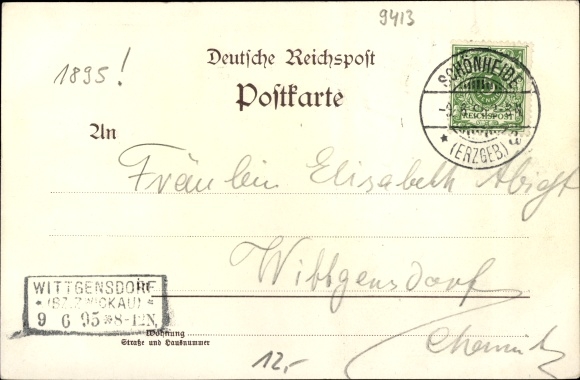 9413
1895!
Deutsche Reichspost
Postkarte
An
SCHÖNHEIDE
REICHSPOST
* (ERZGEB.)
Fräulein Elisabeth Abicht
Wittgensdorf
Chemnitz
WITTGENSDORF
* (BZ. ZWICKAU) *
9 6 95 *8-12N.
Wohnung
Straße und Hausnummer
12,-